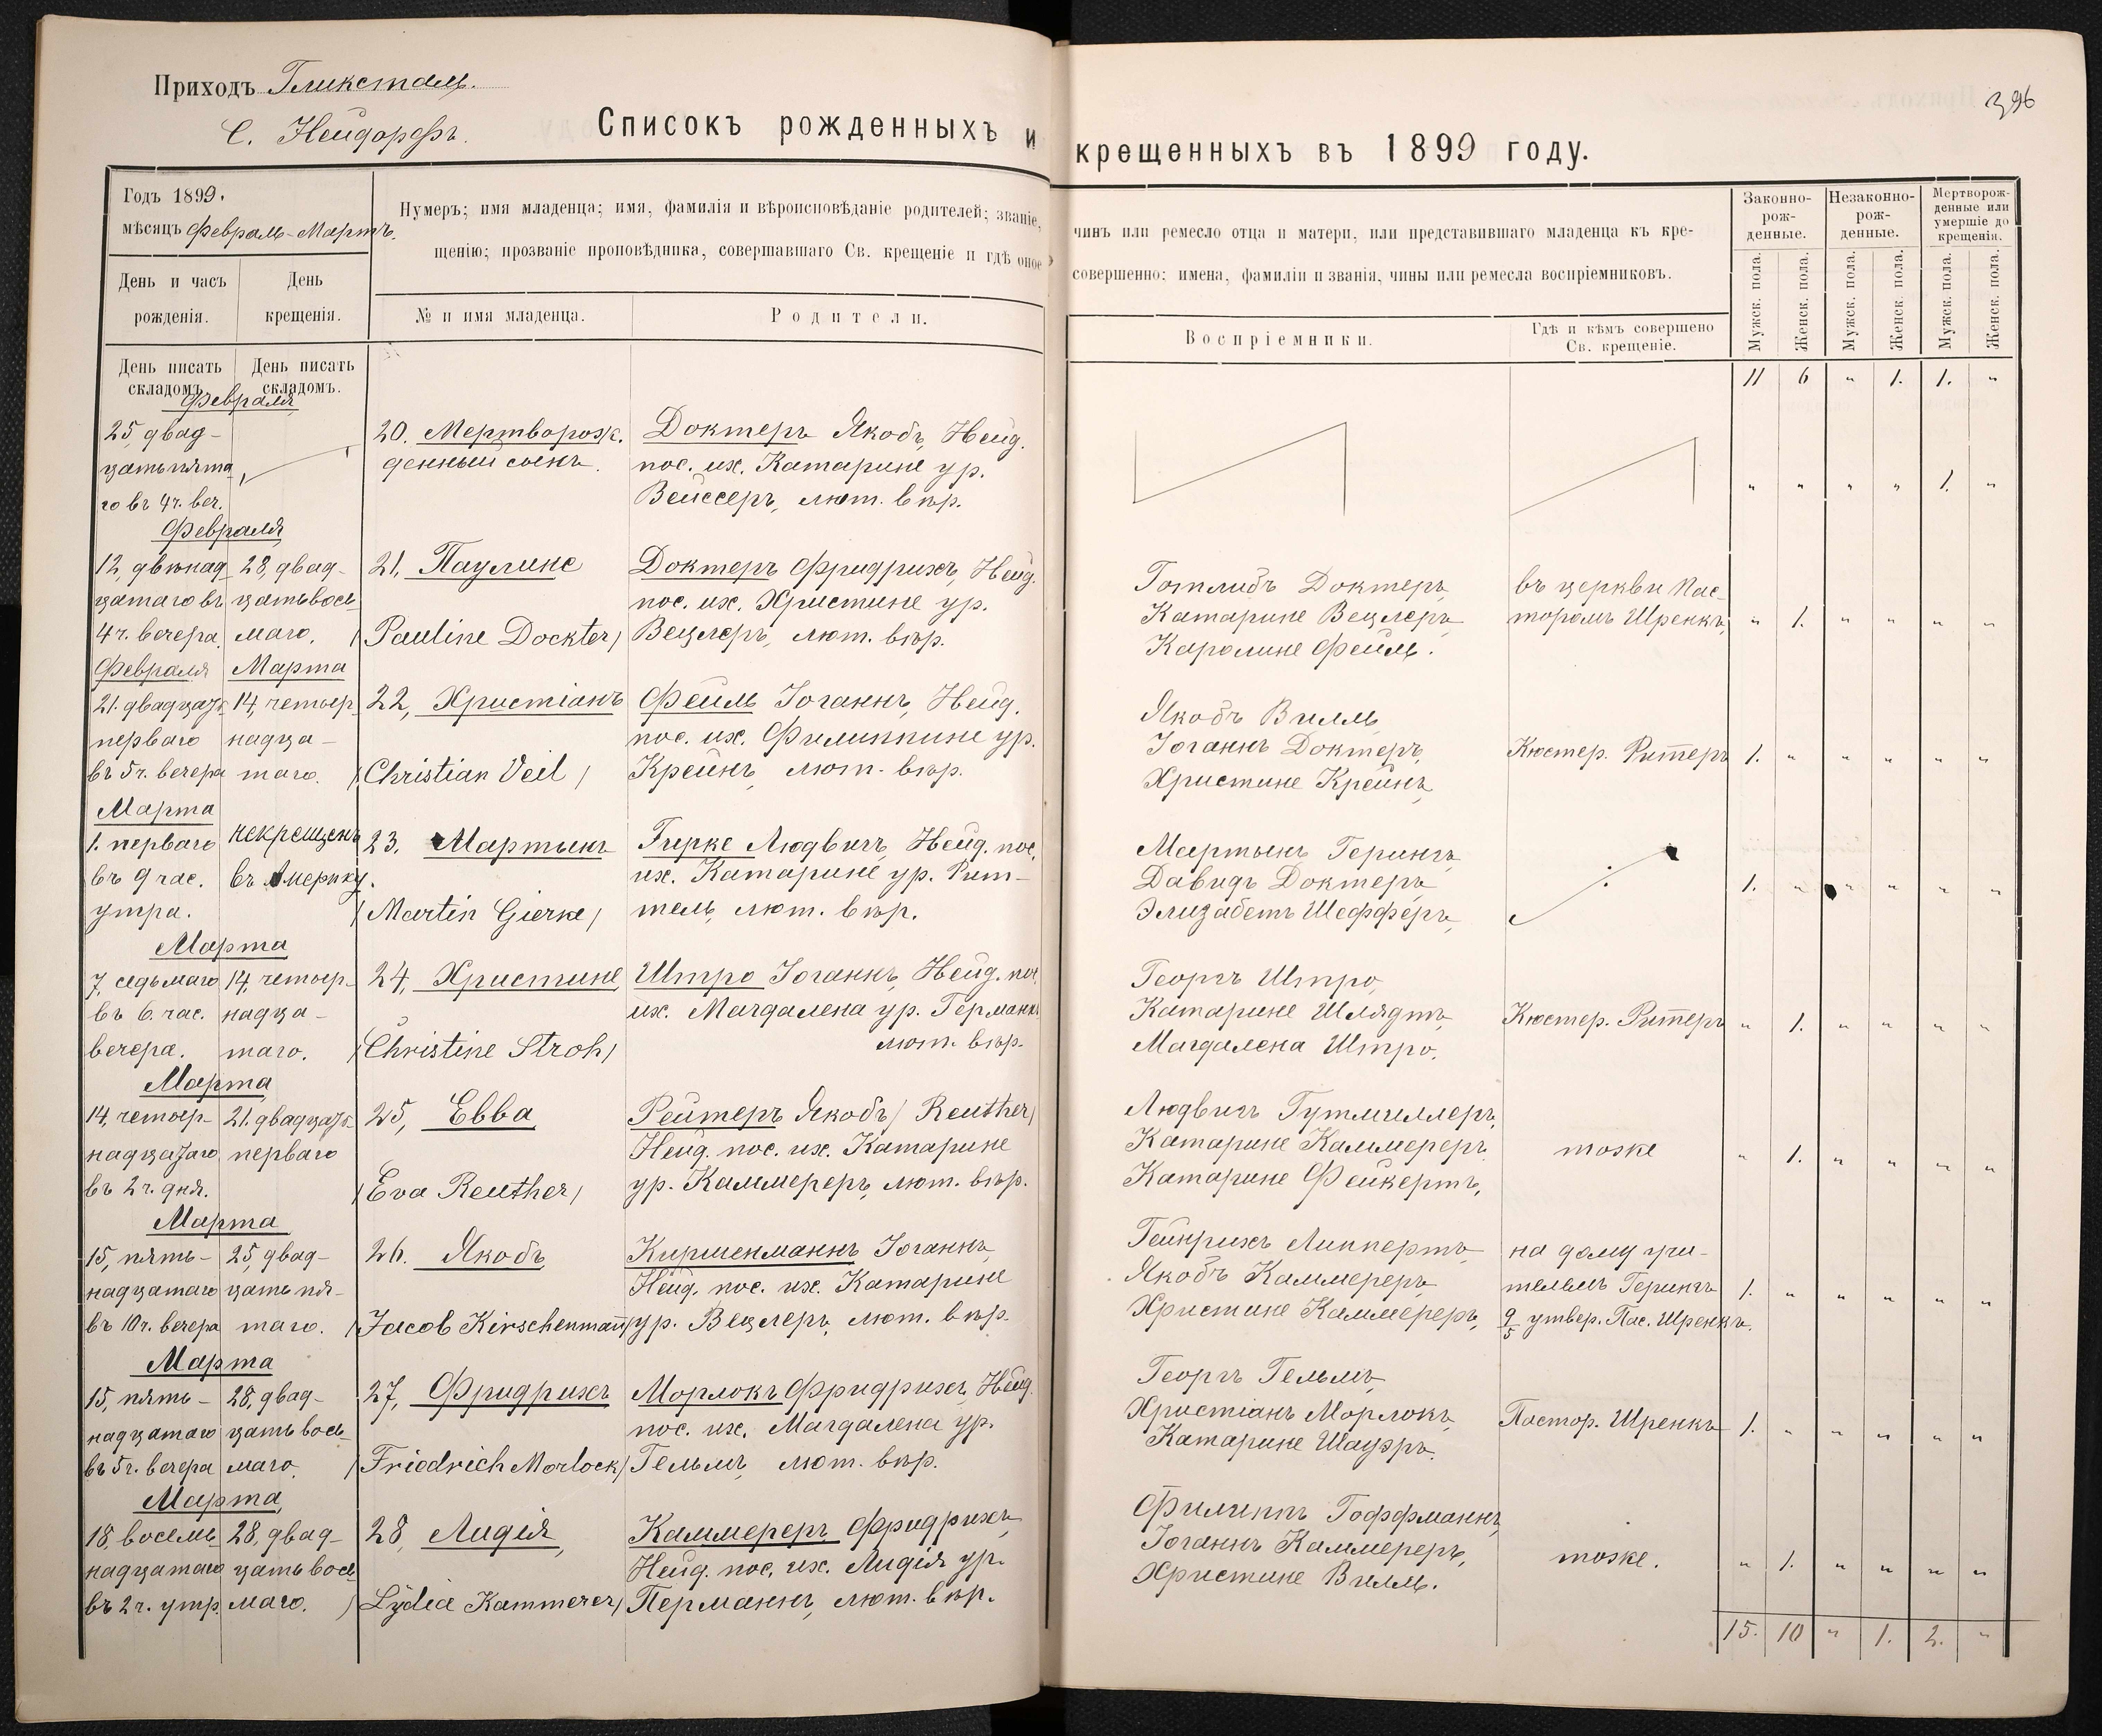 Приходъ Гликсталь.
С. Нейдорфъ.
396
Списокъ рожденныхъ и крещенныхъ въ 1899 году.
Годъ 1899.
мѣсяцъ Февраль-Мартъ.
День и часъ рожденія.
День крещенія.
Нумеръ; имя младенца; имя, фамилія и вѣроисповѣданіе родителей; званіе, чинъ или ремесло отца и матери, или представившаго младенца къ кре-
щенію; прозваніе проповѣдника, совершавшаго Св. крещеніе и гдѣ оное совершенно; имена, фамиліи и званія, чины или ремесла воспріемниковъ.
№ и имя младенца.
Родители.
Воспріемники.
Гдѣ и кѣмъ совершено Св. крещеніе.
Законно-рож-денные.
Незаконно-рож-денные.
Мертворож-денные или умершіе до крещенія.
Мужск. пола.
Женск. пола.
Мужск. пола.
Женск. пола.
Мужск. пола.
Женск. пола.
День писать складомъ.
День писать складомъ.
11 6 " 1. 1. "
Февраля
25, двад-
цатьпята
го въ 4ч. веч.
20. Мертворож.
денный сынъ.
Доктеръ Якобъ, Нейд.
пос. их. Катарине ур.
Вейссеръ, лют. вѣр.
" " " " 1. "
Февраля
12, двѣнад
цатаго въ
4 ч. вечера.
28, двад-
цатьвось
маго.
21, Паулине
/Pauline Dockter/
Доктеръ Фридрихъ, Нейд.
пос. их. Христине ур.
Вецлеръ, лют. вѣр.
Готлибъ Доктеръ,
Катарине Вецлеръ,
Каролине Фейль.
въ церкви Пас-
торомъ Шренкъ,
" 1. " " " "
Февраля
Марта
21. двадцать
перваго
въ 5ч. вечера
14, четыр
надца-
таго.
22, Христіанъ
/Christian Veil/
Фейль Іоганнъ, Нейд.
пос. их. Филиппине ур.
Крейнъ, лют. вѣр.
Якобъ Вилль,
Іоганнъ Доктеръ,
Христине Крейнъ,
Кюстер. Ритеръ
1. " " " " "
Марта
1. перваго
въ 9 час.
утра.
некрещенъ
въ Америку.
23. Мартынъ
/Martin Gierke/
Гирке Людвигъ, Нейд. пос.
их. Катарине ур. Рит-
тель, лют. вѣр.
Мартынъ Герингъ,
Давидъ Доктеръ,
Элизабетъ Шефферъ,
1. " " " " "
Марта
7, седьмаго
въ 6. час.
вечера.
14, четыр-
надца-
таго.
24, Христине
/Christine Stroh/
Штро Іоганнъ, Нейд. пос.
их. Магдалена ур. Германнъ
лют. вѣр.
Георгъ Штро,
Катарине Шлядтъ,
Магдалена Штро,
Кюстер. Ритеръ
" 1. " " " "
Марта
14, четыр-
надцатаго
въ 2 ч. дня.
21. двадцать
перваго
25, Евва
/Eva Reuther/
Рейтеръ Якобъ /Reuther/
Нейд. пос. их. Катарине
ур. Каммереръ, лют. вѣр.
Людвигъ Гутмиллеръ,
Катарине Каммереръ
Катарине Фейкертъ,
тоже
" 1. " " " "
Марта
15, пять-
надцатаго
въ 10ч. вечера
25, двад-
цать пя-
таго.
26. Якобъ
/Jacob Kirschenmann/
Киршенманнъ Іоганнъ,
Нейд. пос. их. Катарине
ур. Вецлеръ, лют. вѣр.
Гейнрихъ Липпертъ,
Якобъ Каммереръ,
Христине Каммереръ,
на дому учи-
телемъ Герингъ
9/5 утвер. Пас. Шренкъ.
1. " " " " "
Марта
15, пять-
надцатаго
въ 5ч. вечера
28, двад-
цать вось-
маго.
27, Фридрихъ
/Friedrich Morlock/
Морлокъ Фридрихъ, Нейд.
пос. их. Магдалена ур.
Гельмъ, лют. вѣр.
Георгъ Гельмъ,
Христіанъ Морлокъ,
Катарине Шауэръ.
Пастор. Шренкъ
1. " " " " "
Марта,
18, восемь
надцатаго
въ 2 ч. утр.
28, двад-
цать вось
маго.
28, Лидія,
/Lydia Kammerer/
Каммереръ Фридрихъ,
Нейд. пос. их. Лидія ур.
Перманнъ, лют. вѣр.
Филиппъ Гоффманнъ,
Іоганнъ Каммереръ,
Христине Вилль.
тоже.
" 1. " " " "
15. 10 " 1. 2. "